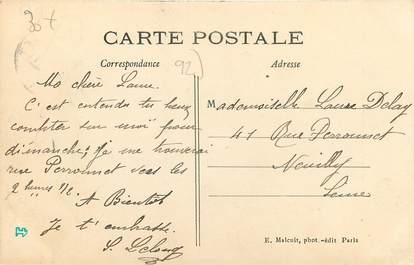 30 f
CARTE POSTALE
Correspondance
Adresse
92
Ma chère Laure.
C'est entendu tu peux
compter sur moi pour
dimanche. Je me trouverai
rue Perronnet vers les
2 heures 1/2.
A Bientôt
Je t'embrasse
S. Lelong
Mademoiselle Laure Delay
41 Rue Perronnet
Neuilly
Seine
E. Malcuit, phot.-édit Paris